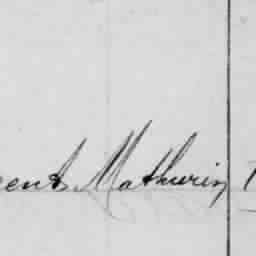 cent Mathurin